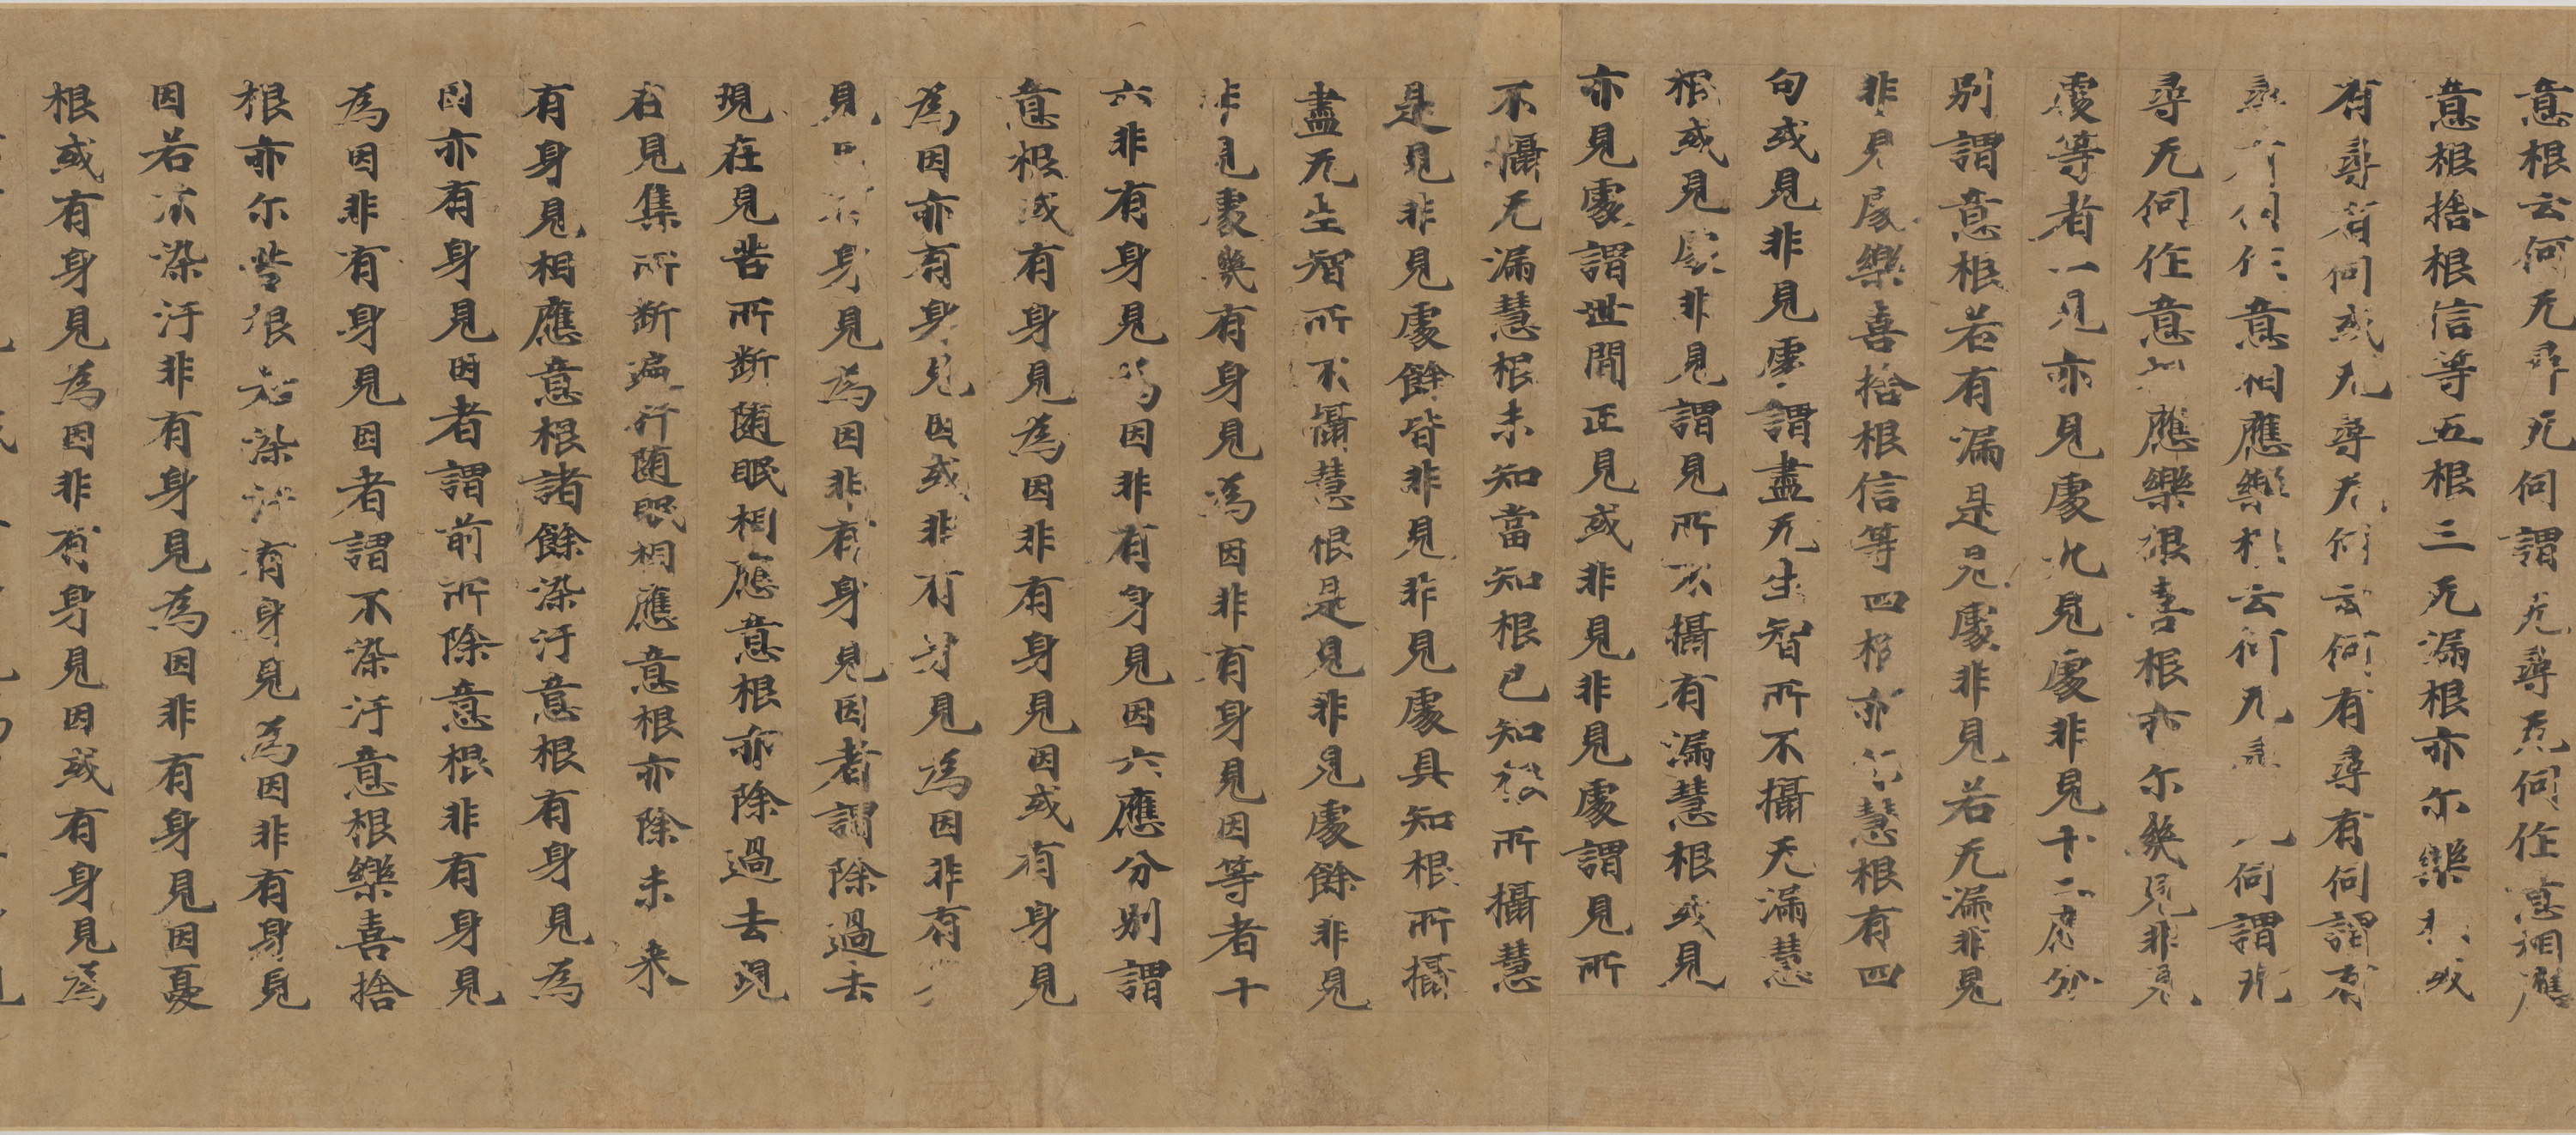 意根云何无尋无伺謂无尋无伺作意相應
意根捨根信等五根三无漏根亦尔樂根或
有尋有伺或无尋无伺云何有尋有伺謂有
尋有伺作意相應樂根云何无尋无伺謂无
尋无伺作意相應樂根喜根亦尔幾見非見
處等者一見亦見處九見處非見十二應分
別謂意根若有漏是見處非見若无漏非見
非見處樂喜捨根信等四根亦尔慧根有四
句或見非見處謂盡无生智所不攝无漏慧
根或見處非見謂見所不攝有漏慧根或見
亦見處謂世間正見或非見非見處謂見所
不攝无漏慧根未知當知根已知根所攝慧
是見非見處餘皆非見非見處具知根所攝
盡无生智所不攝慧根是見非見處餘非見
非見處幾有身見為因非有身見因等者十
六非有身見為因非有身見因六應分別謂
意根或有身見為因非有身見因或有身見
為因亦有身見因或非有身見為因非有
見因有身見為因非有身見因者謂除過去
現在見苦所断随眠相應意根亦除過去現
在見集所断遍行随眠相應意根亦除未来
有身見相應意根諸餘染汙意根有身見為
因亦有身見因者謂前所除意根非有身見
為因非有身見因者謂不染汙意根樂喜捨
根亦尔苦根若染汙有身見為因非有身見
因若不染汙非有身見為因非有身見因憂
根或有身見為因非有身見因或有身見為